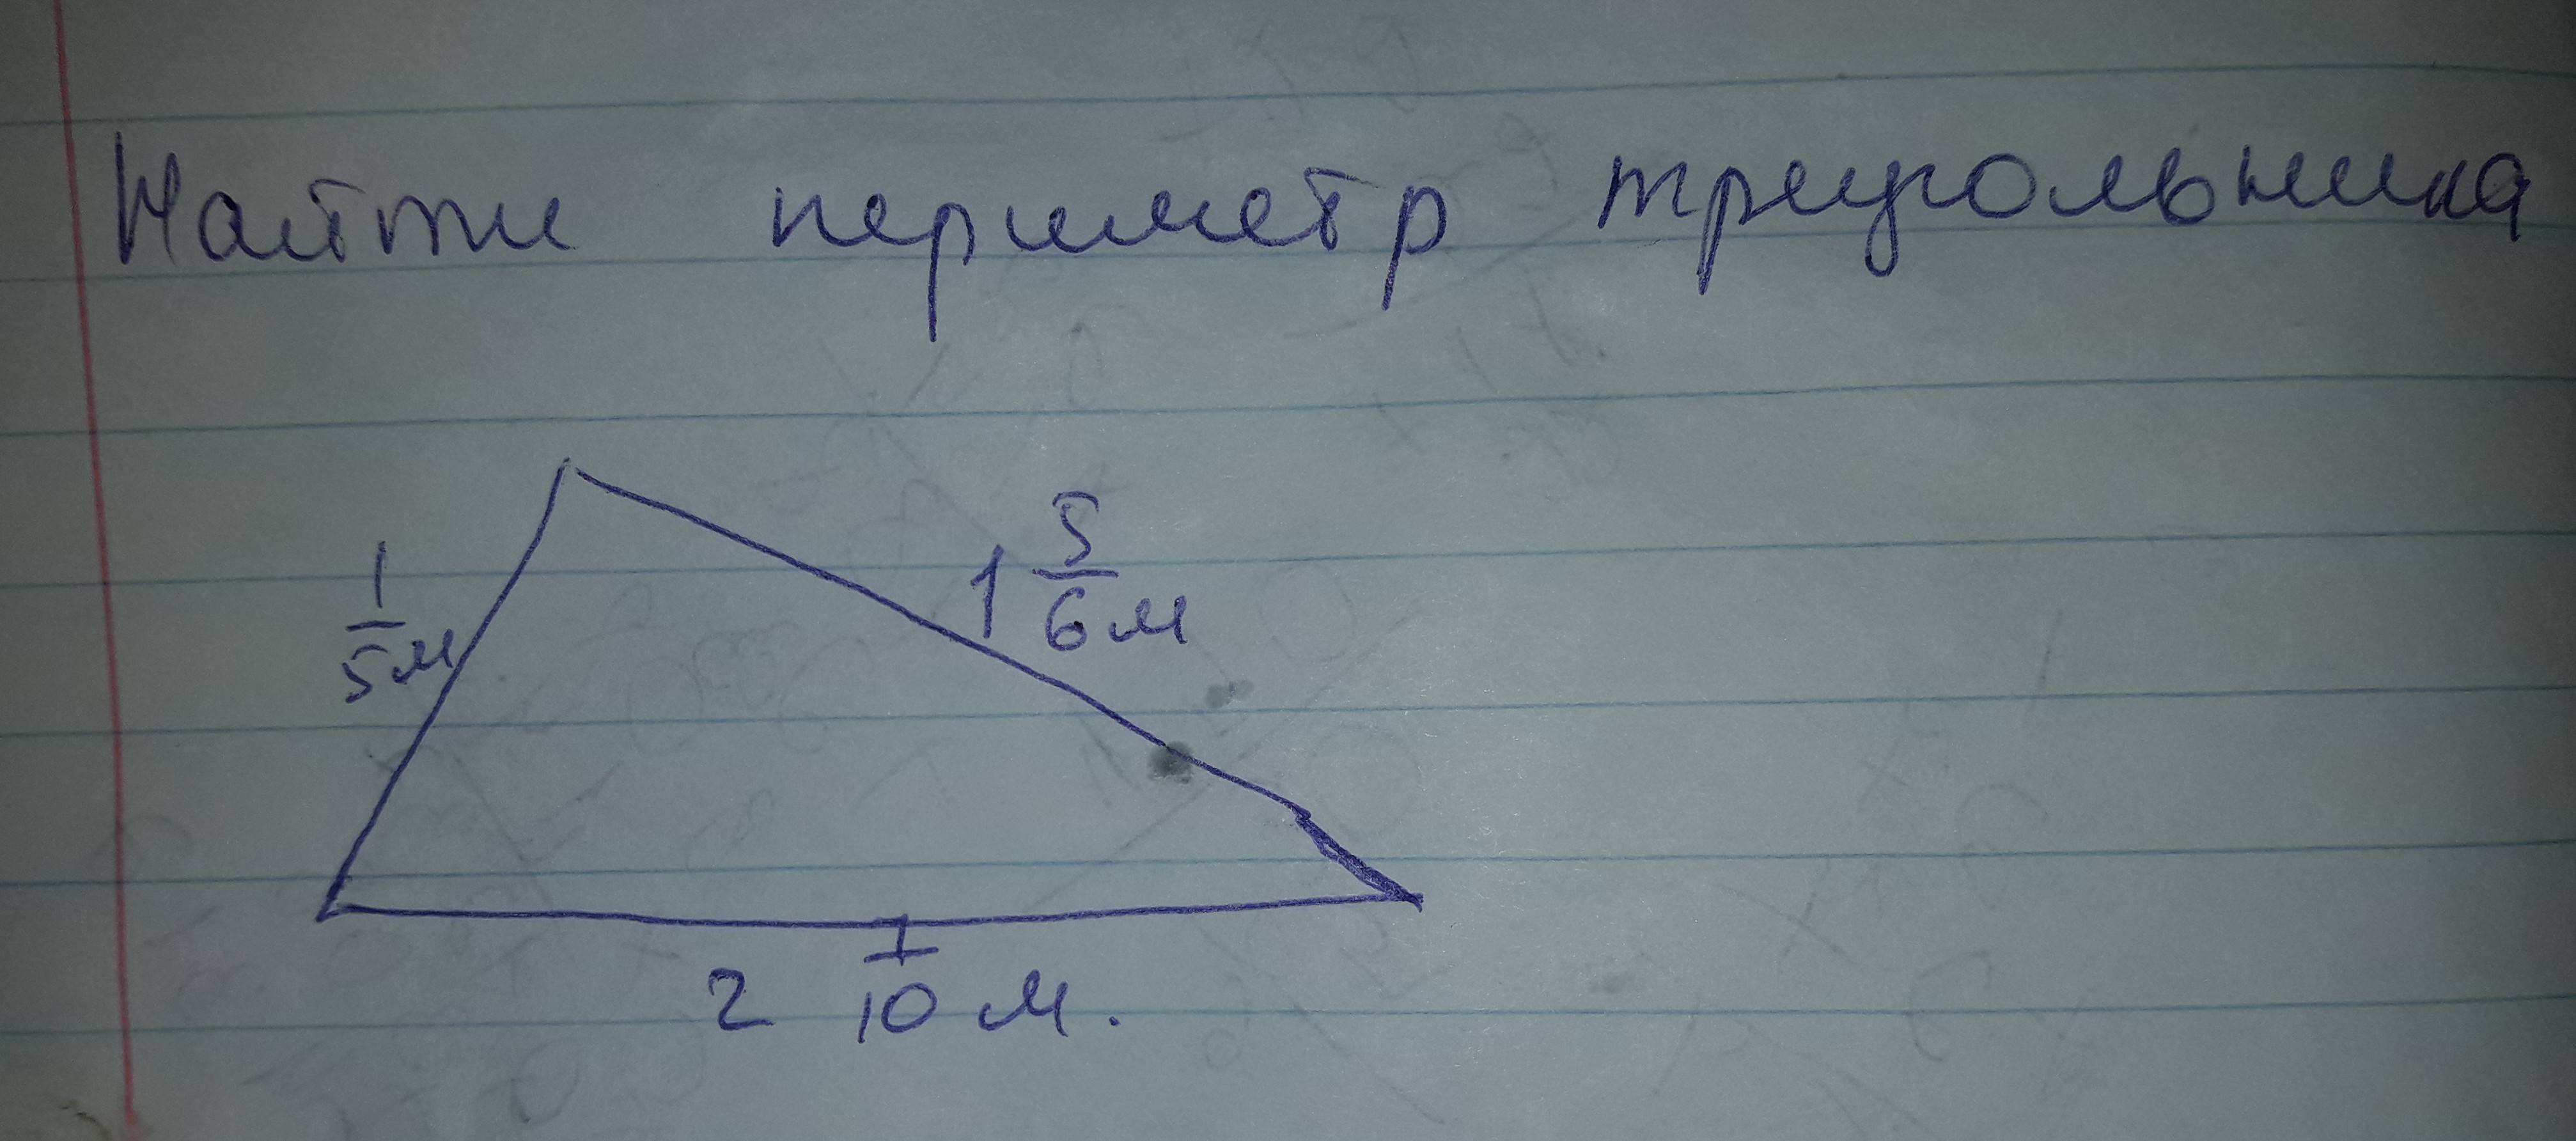 Найти периметр треугольника
1 5/6 м
1/5 м
2 1/10 м.